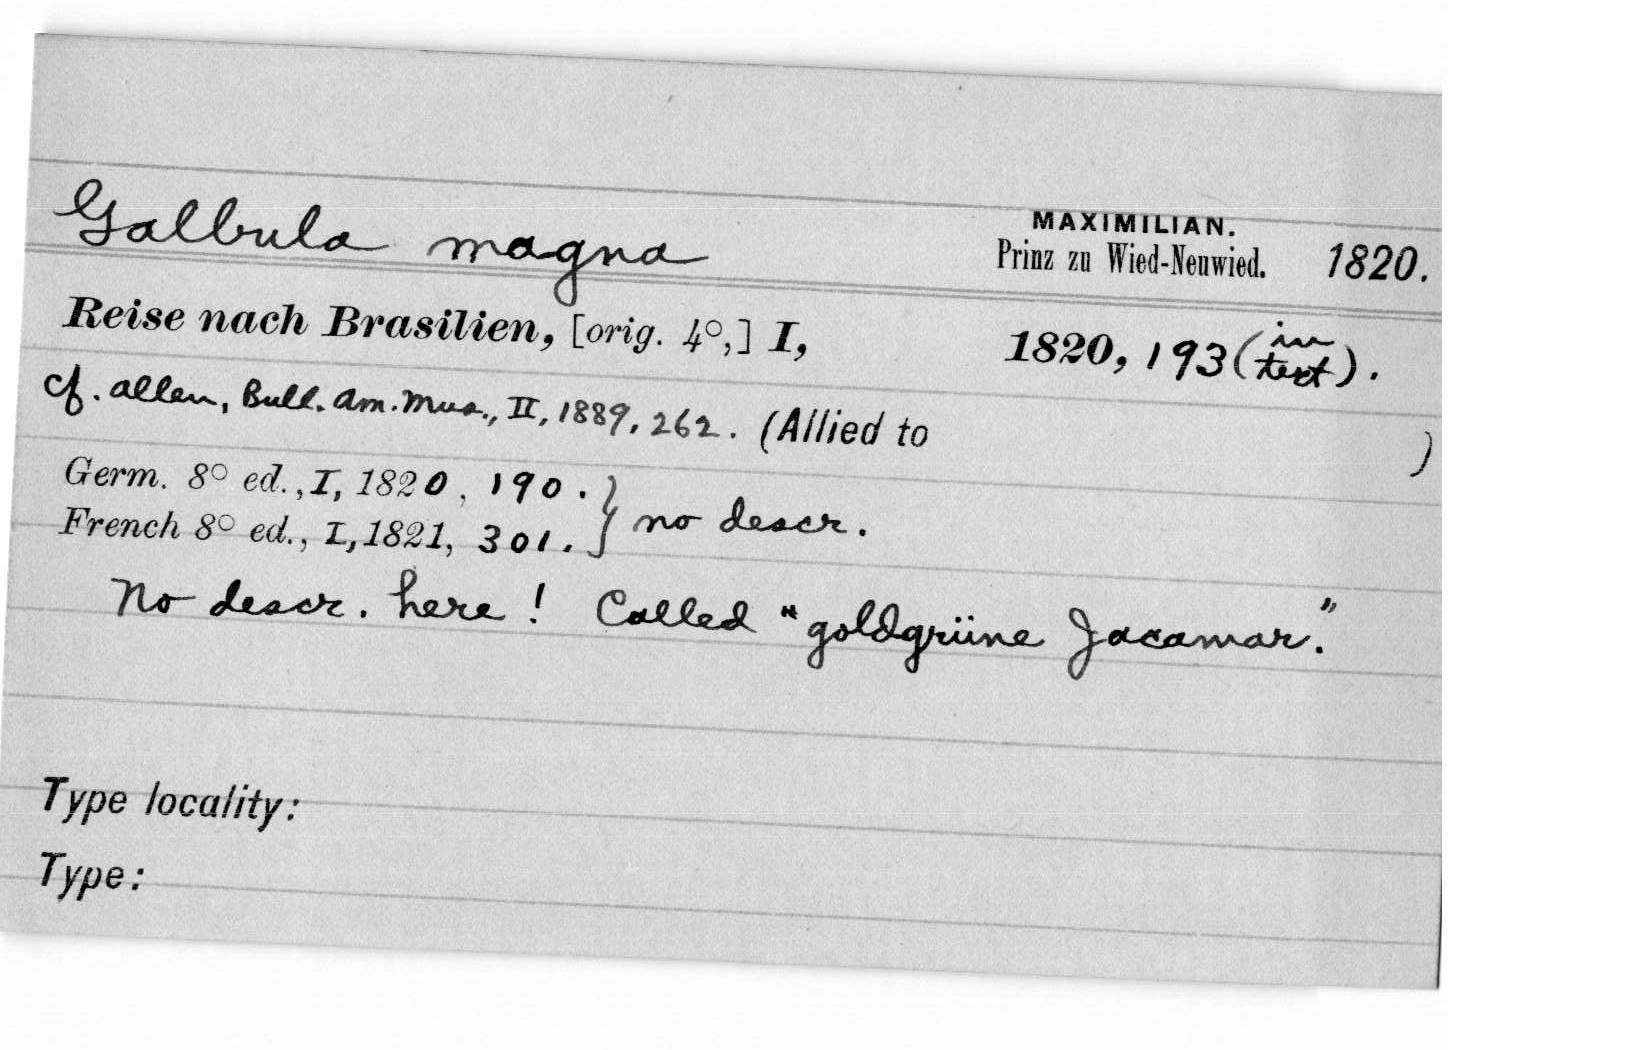 Galbula magna MAXIMILIAN. Prinz zu Wied-Neuwied. 1820.
Reise nach Brasilien, [orig. 4°,] I, 1820, 193 (in text).
cf. Allen, Bull. Am. Mus., II, 1889, 262. (Allied to )
Germ. 8° ed., I, 1820, 190. } no descr.
French 8° ed., I, 1821, 301. }
No descr. here! Called "goldgrüne Jacamar."
Type locality:
Type: